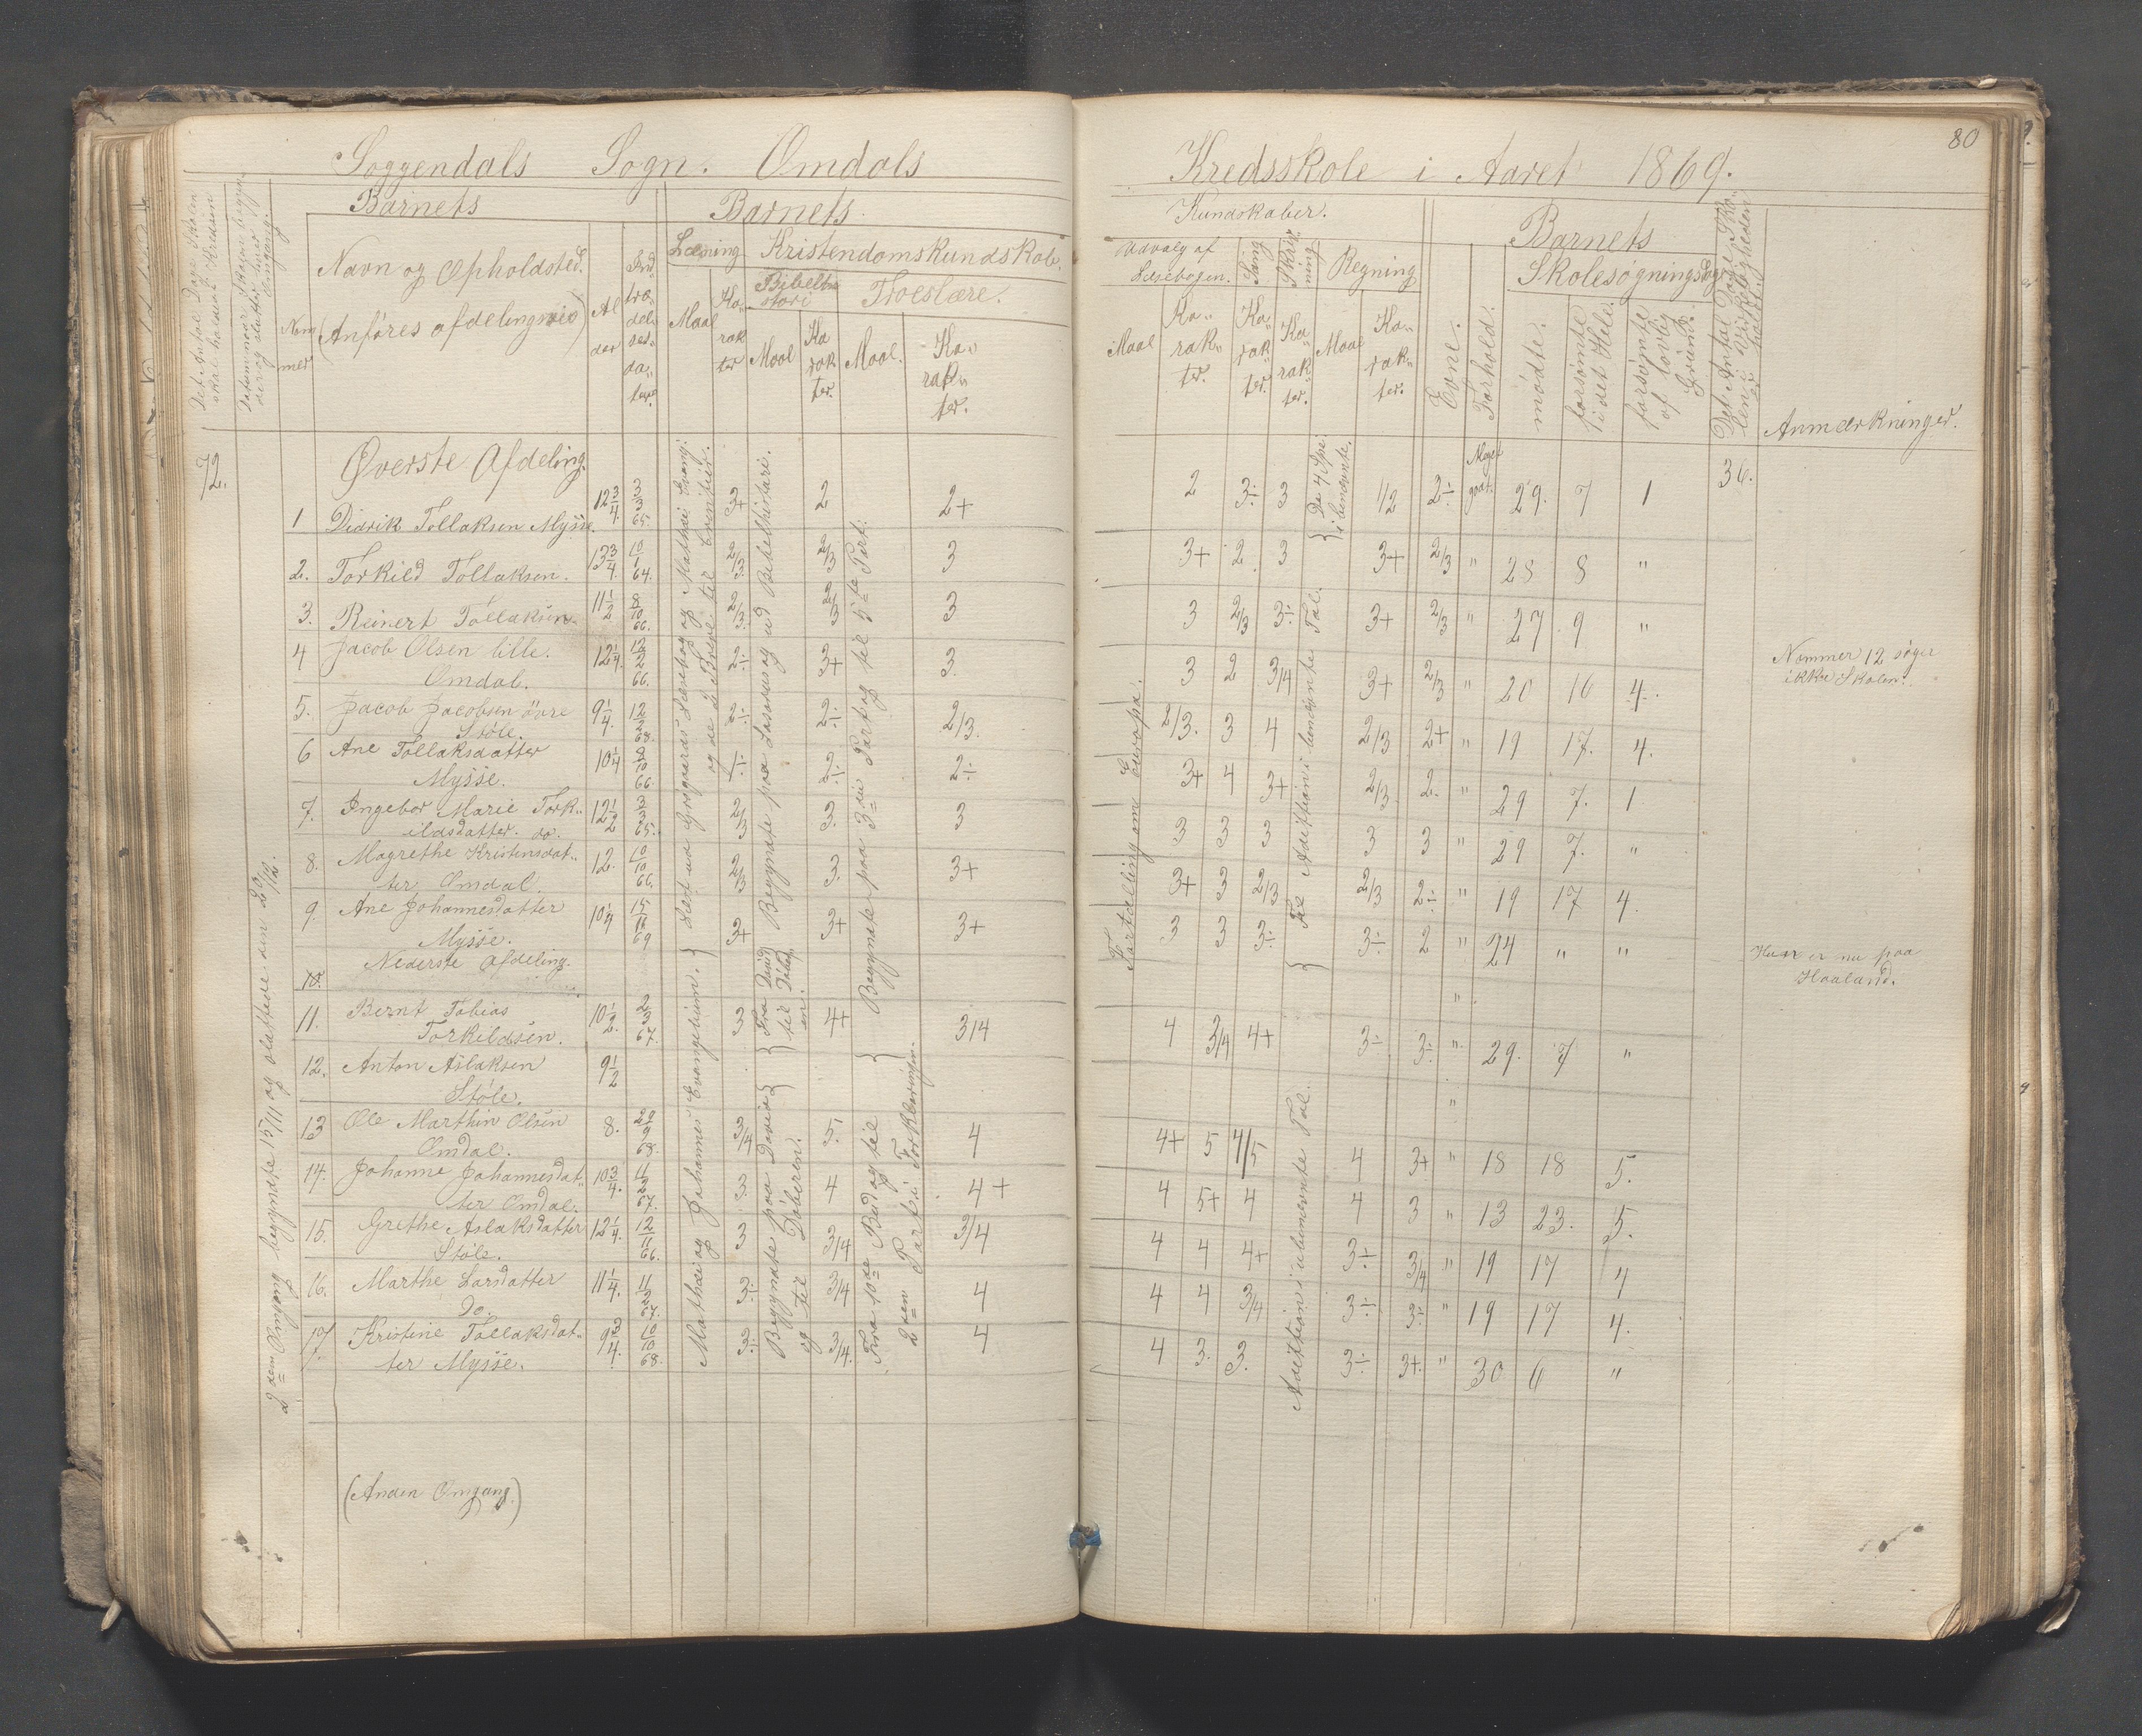 80
Soggendals Sogn. Omdals Kredsskole i Aaret 1869.
Det Antal Dage Skolen skal holdes i Kredsen
Datum naar Skolen begynder og slutter hver Omgang.
Nommer
Barnets
Navn og Opholdsted.
(Anføres afdelingsvis)
Alder
Indtrædelsesdatum.
Barnets
Læsning
Maal
Karakter
Kristendomskundskab.
Bibelhistori
Maal
Karakter.
Troeslære.
Maal.
Karakter.
Kundskaber.
Udvalg af Læsebogen.
Maal
Karakter.
Sang
Karakter.
Skrivning
Karakter.
Regning
Maal
Karakter.
Evne.
Forhold.
Barnets
Skolesøgningsdage
mødte.
forsømte i det Hele.
forsømte af lovlig Grund.
Det Antal Dage Skolen i Virkeligheden er holdt.
Anmærkninger.
72.
Øverste Afdeling.
36.
1 Didrik Tollaksen Mysse. 12 3/4 3/3 65. 3+ 2 2+ 2 3÷ 3 1/2 2÷ Meget godt. 29. 7 1
2. Torkild Tollaksen. 13 3/4. 10/1 64. 2/3 2/3 3 3+ 2 3 3+ 2/3 " 28 8 "
3. Reinert Tollaksen. 11 1/2 8/10 66. 2/3 2/3 3 3 2/3 3÷ 3+ 2/3 " 27 9 "
4 Jacob Olsen lille.
Omdal. 12 1/4. 12/2 66. 2÷ 3+ 3. 3 2 3/4 3+ 2/3 " 20 16 4.
5. Jacob Jacobsen övre
Støle. 9 1/4. 12/2 68. 2÷ 2÷ 2/3. 2/3. 3 4 2/3 2+ " 19 17. 4.
6 Ane Tollaksdatter
Mysse. 10 1/4 8/10 66 1÷ 2÷ 2÷ 3+ 4 3+ 2/3 2. " 29 7. 1
7. Ingebor Marie Tork-
ildsdatter. do. 12 1/2 3/3 65. 2/3 3. 3 3 3 3 3 3 " 29 7. "
8. Magrethe Kristensdat-
ter Omdal. 12. 10/10 66. 2/3 3. 3+ 3+ 3 2/3 2/3 2÷ " 19 17 4.
9. Ane Johannesdatter
Mysse. 10 1/4 15/11 69 3+ 3+ 3+ 3 3 3÷ 3÷ 2 " 24 " "
Nederste Afdeling.
10.
11. Bernt Tobias
Torkildsen. 10 1/2. 2/3 67. 3 4+ 3/4 4 3/4 4+ 3÷ 3÷ " 29. 7 "
12. Anton Aslaksen
Støle. 9 1/2
13 Ole Marthin Olsen
Omdal. 8. 29/9 68. 3/4 5. 4 4+ 5 4/5 4 3+ " 18 18 5.
14. Johanne Johannesdat-
ter Omdal. 10 3/4. 11/2 67. 3. 4 4+ 4 5+ 4 4 3 " 13 23. 5.
15. Grethe Aslaksdatter
Støle. 12 1/4. 12/11 66. 3 3/4 3/4 4 4 4+ 3÷ 3/4 " 19 17 4
16. Marthe Larsdatter
Do. 11 1/4. 11/2 67. 3÷ 3/4 4 4 4 3/4 3÷ 3÷ " 19 17 4.
17 Kristine Tollaksdat-
ter Mysse. 9 3/4. 10/10 68. 3÷ 3/4. 4 4 3. 3. 3÷ 3+. " 30 6 "
2den Omgang begyndte 15/11 og sluttede den 20/12.
Læst ud Grogaards Læsebog og Mathæi Evangelium
og de 2 Breve til
Mathæi og Johannes Evangelium.
Begyndte paa Josvas og ud Bibelhistori.
Fra David til
Begyndte paa David
og til
Begyndte paa 3die Part og til 5te Part.
Fra 10de Bud og til
2den Part i Forklaringen.
Fortælling om Europa.
De 4 Spe. i benævnte.
Til Addition i benævnte Tal.
Addition i ubenævnte Tal.
Nommer 12 søger
ikke Skolen.
Hun er nu paa
Haaland.
(Anden Omgang.)